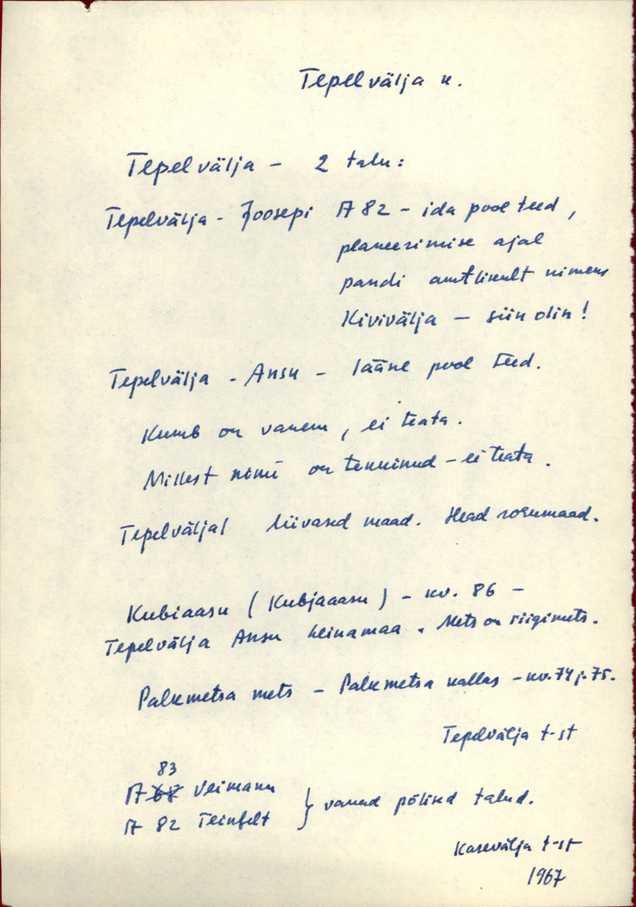 Tepelvälja k.
Tepelvälja - 2 talu:
Tepelvälja - Joosepi A 82 - ida pool teed,
planeerimise ajal
pandi ametlikult nimeks
Kivivälja - siin olin!
Tepelvälja - Ansu - lääne pool teed.
Kumb on vanem, ei teata.
Millest nimi on tekkinud - ei teata.
Tepelväljal liivased maad. Head rohumaad.
Kubiaasu (Kubjaaasu) - kv. 86 -
Tepelvälja Ansu heinamaa. Mets on riigimets.
Palumetsa mets - Palumetsa kallas - kv. 74 j. 75.
Tepelvälja t-st
83
A 68 Veimann
A 82 Teinfelt } vanad põlised talud.
Kasevälja t-st
1967